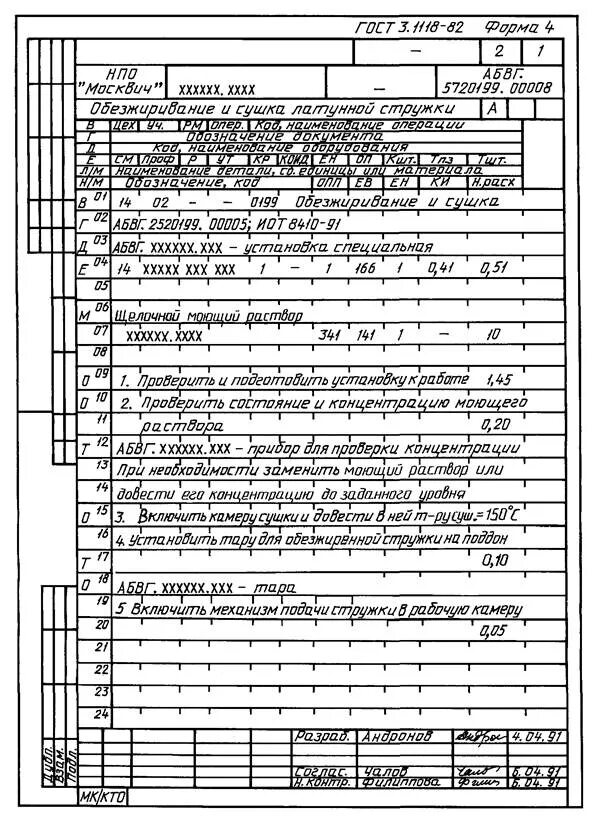 ГОСТ 3.1118-82 Форма 4
— 2 1
НПО "Москвич" XXXXXX. XXXX — АБВГ. 5720199. 00008
Обезжиривание и сушка латунной стружки А
В Цех Уч. РМ Опер. Код, наименование операции
Г Обозначение документа
Д Код, наименование оборудования
Е СМ Проф Р УТ КР КОИД ЕН ОП Кшт. Тпз Тшт.
Л/М Наименование детали, сб. единицы или материала
Н/М Обозначение, код ОПП ЕВ ЕН КИ Н.расх
В 01 14 02 — — 0199 Обезжиривание и сушка
Г 02 АБВГ. 2520199. 00005; ИОТ 8410-91
Д 03 АБВГ. XXXXXX. XXX – установка специальная
Е 04 14 XXXXX XXX XXX 1 – 1 166 1 0,41 0,51
05
М 06 Щелочной моющий раствор
07 XXXXXX. XXXX 341 141 1 – 10
08
О 09 1. Проверить и подготовить установку к работе 1,45
О 10 2. Проверить состояние и концентрацию моющего
11 раствора 0,20
Т 12 АБВГ. XXXXXX. XXX – прибор для проверки концентрации
13 При необходимости заменить моющий раствор или
14 довести его концентрацию до заданного уровня
О 15 3. Включить камеру сушки и довести в ней т-ру суш. = 150°С
16 4. Установить тару для обезжиренной стружки на поддон
Т 17 0,10
О 18 АБВГ. XXXXXX. XXX – тара
19 5 Включить механизм подачи стружки в рабочую камеру
20 0,05
21
22
23
24
Разраб. Андронов 4.04.91
Соглас. Чалов 6.04.91
Н.контр. Филиппова 6.04.91
Дубл.
Взам.
Подл.
МК/КТО